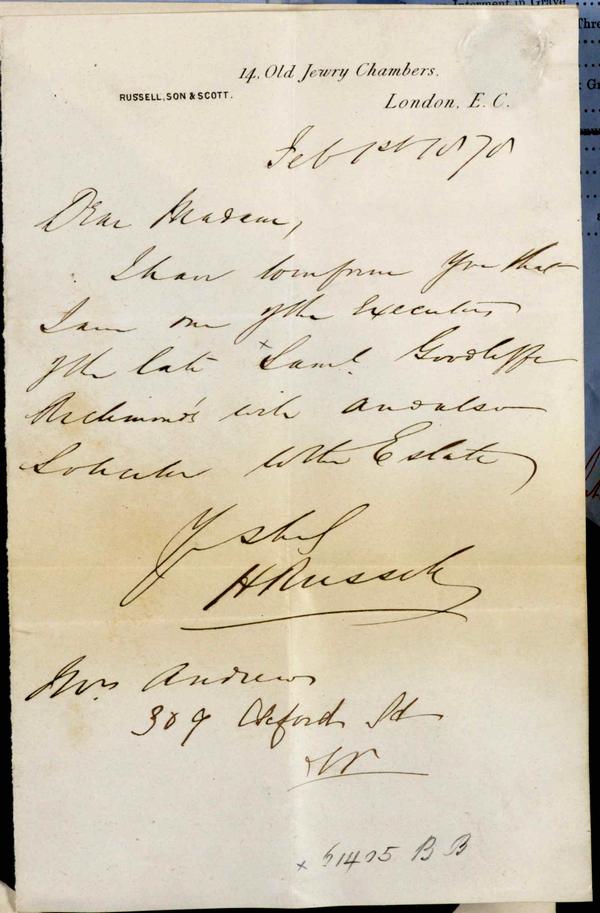 14, Old Jewry Chambers,
RUSSELL, SON & SCOTT.
London, E. C.
Feb 1st 1878
Dear Madam,
I have to inform you that
I am one of the Executors
of the late Saml. Goodliffe
Richmond's will and also
Solicitor to the Estate
Yrs truly
H Russell
Mrs Andrews
309 Oxford St
W
x 61425 BB
Interment in Grave